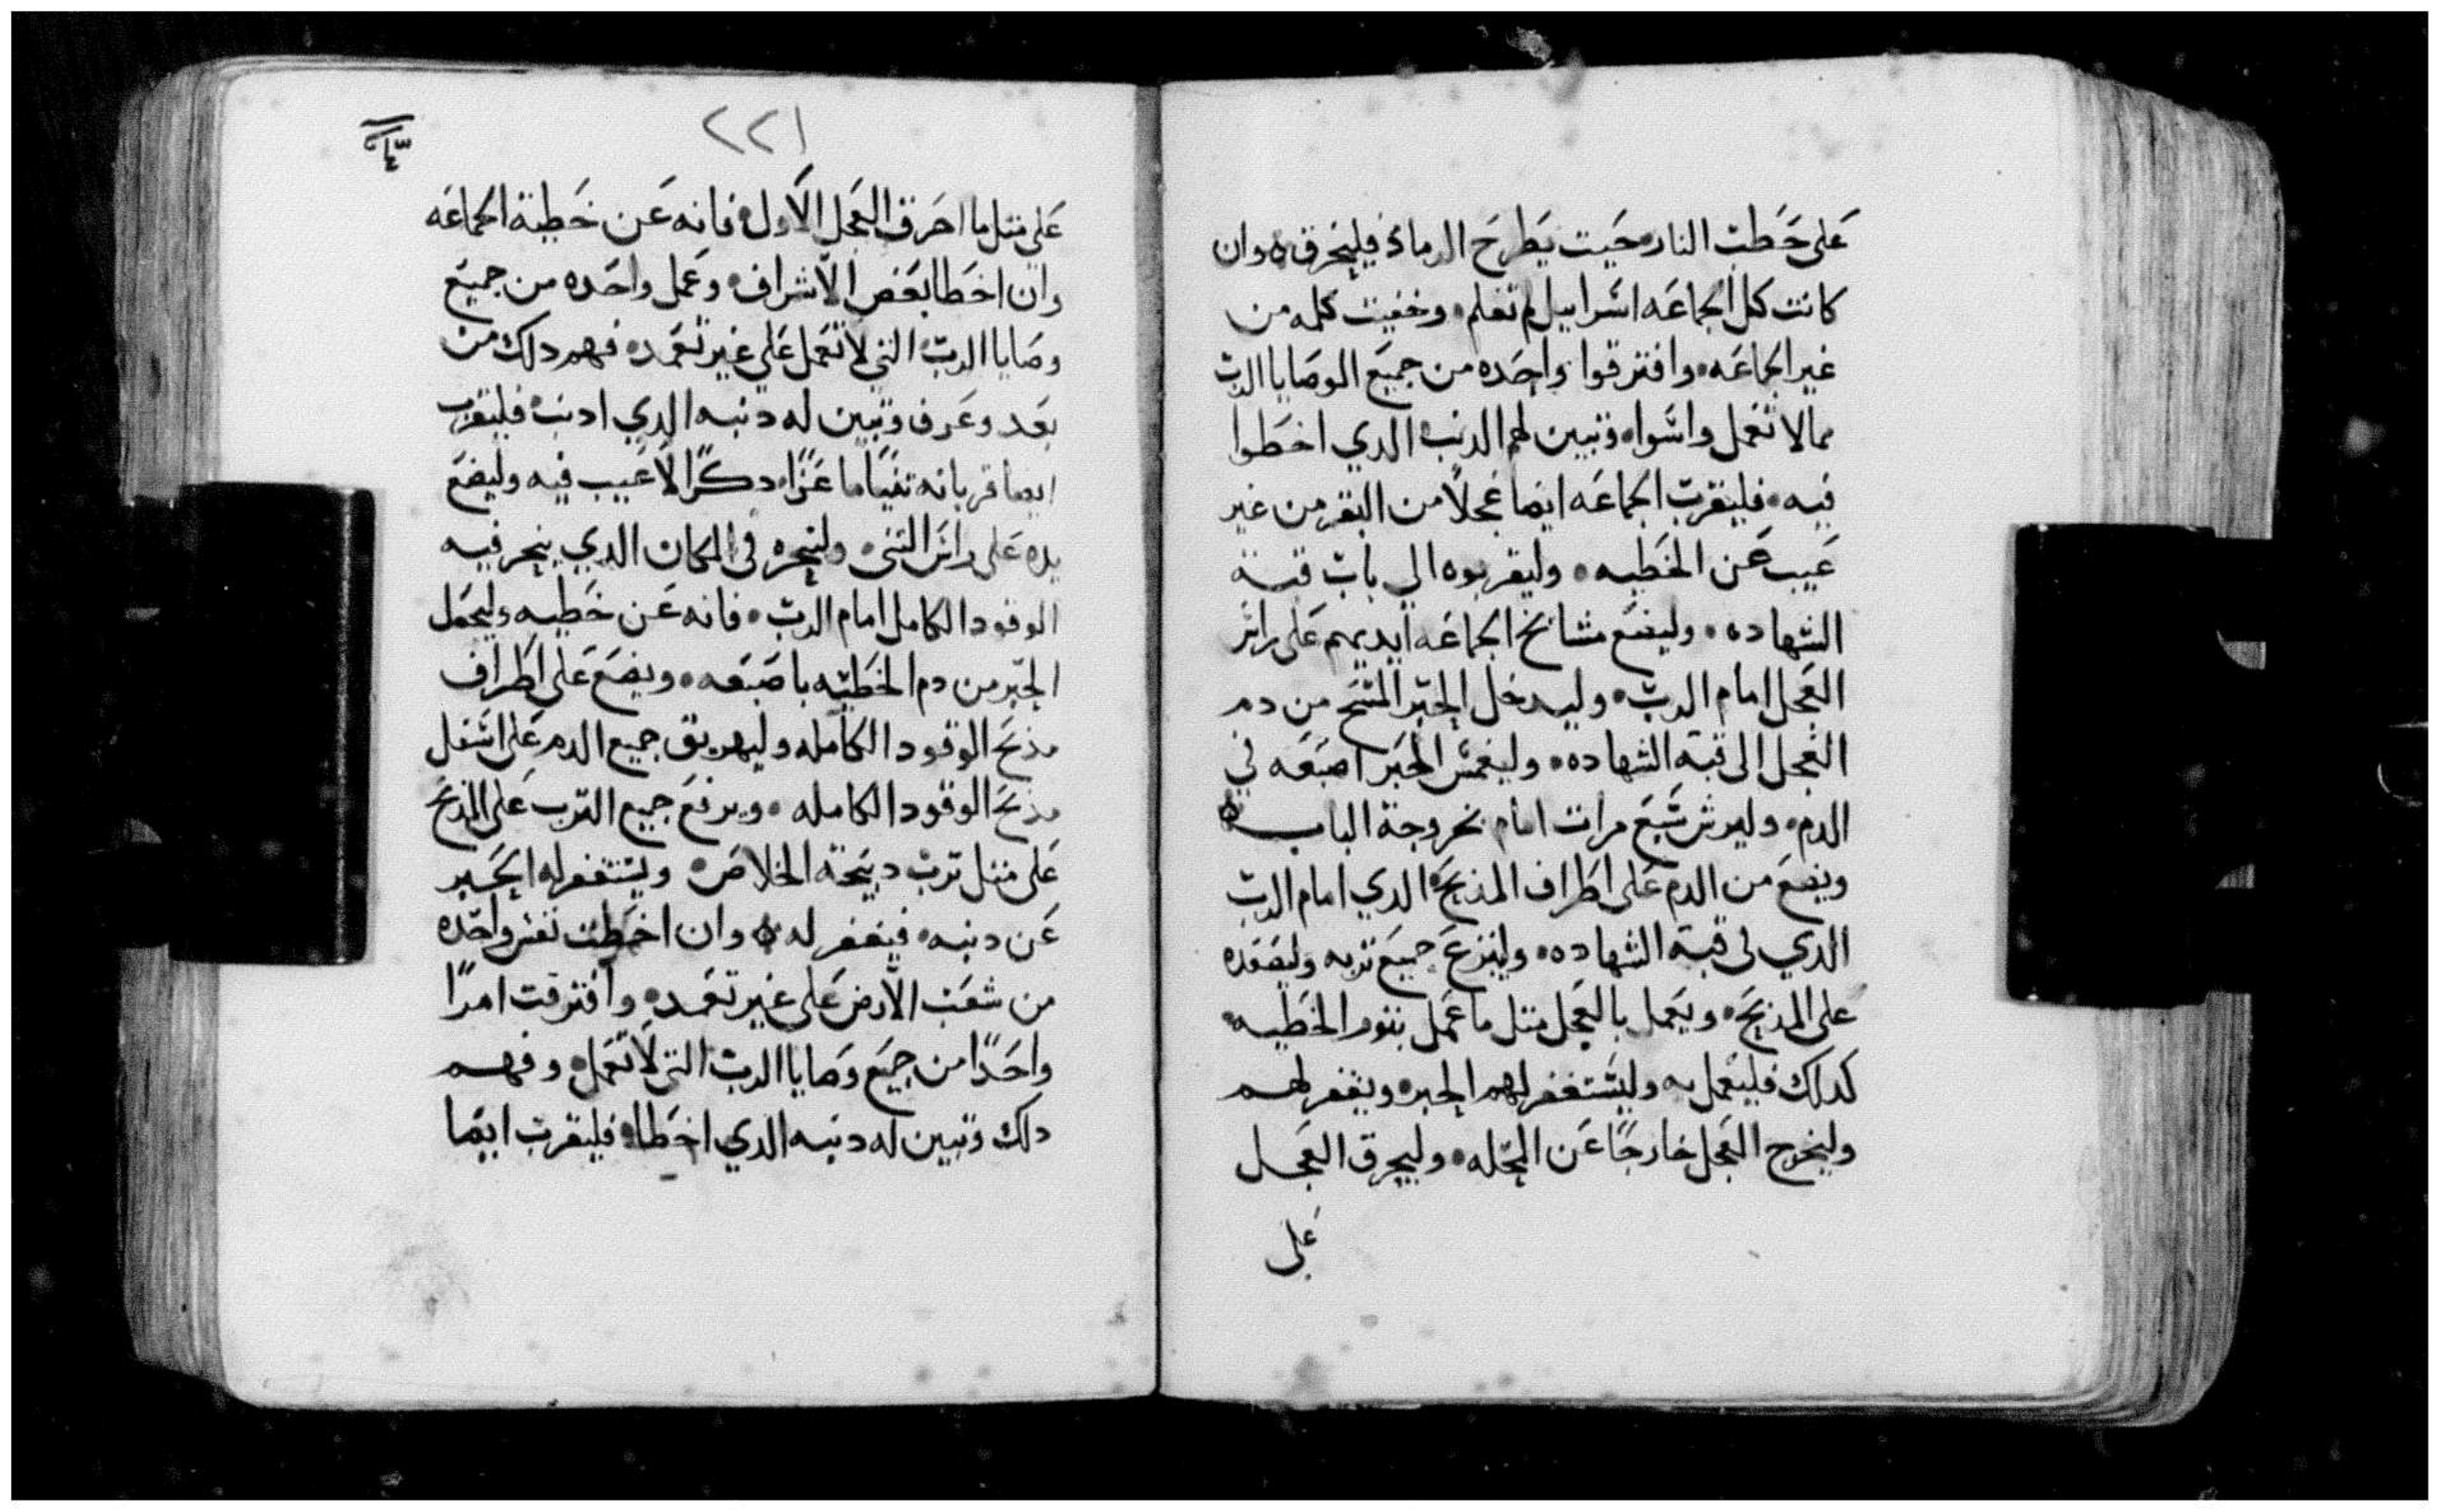 على حطب النار حيت يطرح الرماد فليحرق ه وان
كانت كل الجماعه اسراييل لم تعلم وخفيت كلمه من
غير الجماعه وافترقوا واحده من جميع الوصايا الرب
مما لا تعمل واسواه وتبين لهم الدنب الدي اخطوا
فيه فليقرب الجماعه ايضا عجلًا من البقر من غير
عيب عن الخطيه وليقربوه الي باب قبة
الشهاده وليضع مشايخ الجماعه ايديهم على راس
العجل امام الرب وليدخل الحبر المسح من دم
العجل الى قبة الشهاده وليغمس الحبر اصبعه في
الدم وليرش سبع مرات امام الباب
ويضع من الدم على اطراف المدبح الدي امام الرب
الدي في قبة الشهاده ولينزع جميع تربه وليصعده
على المدبح ويعمل بالعجل متل ما عمل بتور الخطيه
كدلك فليعمل به وليستغفر لهم الحبر ويغفر لهم
وليخرج العجل خارجًا عن المحله وليحرق العجل
على
٢٢١
على متل ما احرق العجل الاول فانه عن خطية الجماعه
وان اخطا بعض الاشراف وعمل واحده من جميع
وصايا الرب التي لا تعمل على غير تعمد فهم دلك من
بعد وعرف وتبين له دنبه الدي ادنب فليقرب
ايضا قربانه عنزًا دكرًا لا عيب فيه وليضع
يده على راس التني ولينحره في المكان الدي ينحر فيه
الوقود الكامل امام الرب فانه عن خطيه وليحمل
الحبر من دم الخطيه باصبعه ويضع على اطراف
مدبح الوقود الكامله وليهريق جميع الدم على اسفل
مدبح الوقود الكامله ويرفع جميع الترب على المدبح
على متل ترب دبيحة الخلاص ويستغفر له الحبر
عن دنبه فيغفر له ه وان اخطت نفس واحده
من شعب الارض على غير تعمد وافترقت امرًا
واحدًا من جميع وصايا الرب التي لا تعمل وفهم
دلك وتبين له دنبه الدي اخطا فليقرب ايضا